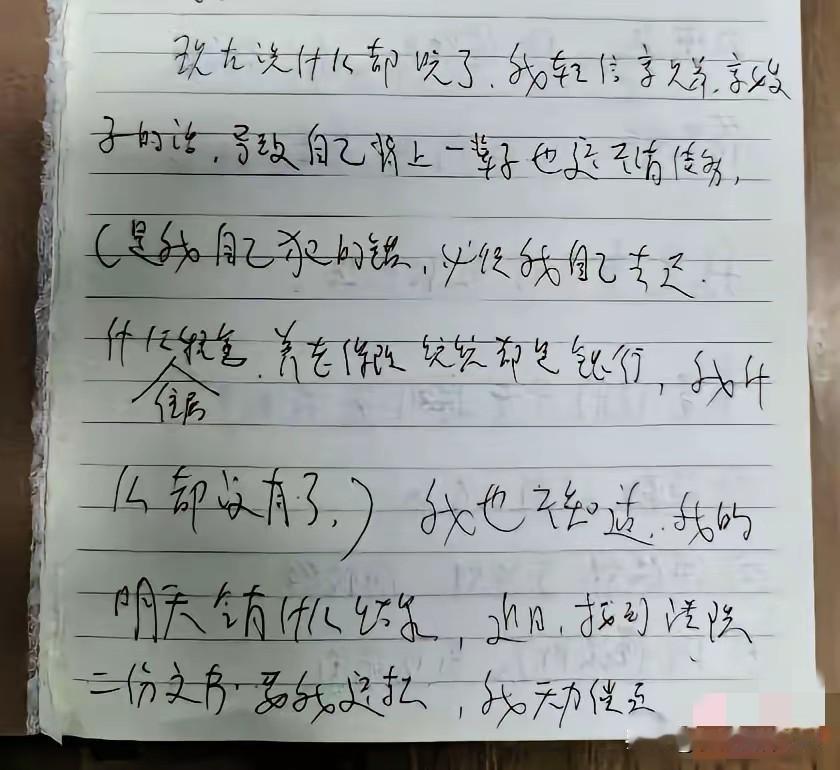 现在说什么都晚了、我轻信亨兄弟、亨嫂
子的话，导致自己背上一辈子也还不清债务，
（是我自己犯的错，必须我自己去还.
什么
住房
养老保险 统统都是银行，我什
么都没有了，）我也不知道，我的
明天会有什么结果，近日、接到法院
二份文书·要我还款，我无力偿还